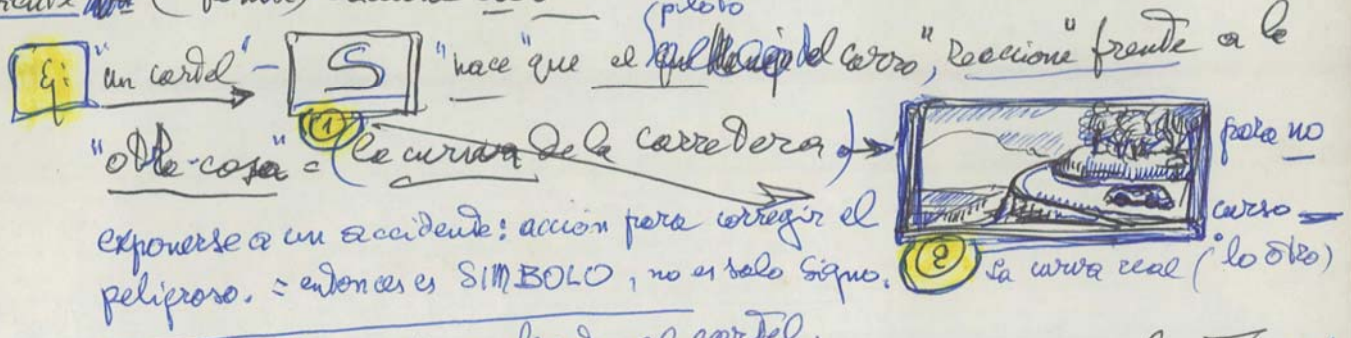 (piloto
Ej: "un cartel" - S "hace" que el del carro", reaccione" frente a la
"otra-cosa" = (la curva de la carretera) para no
exponerse a un accidente: acción para corregir el curso
peligroso. = entonces es SIMBOLO, no es solo signo.
1
2 La curva real ("lo otro)
el cartel.